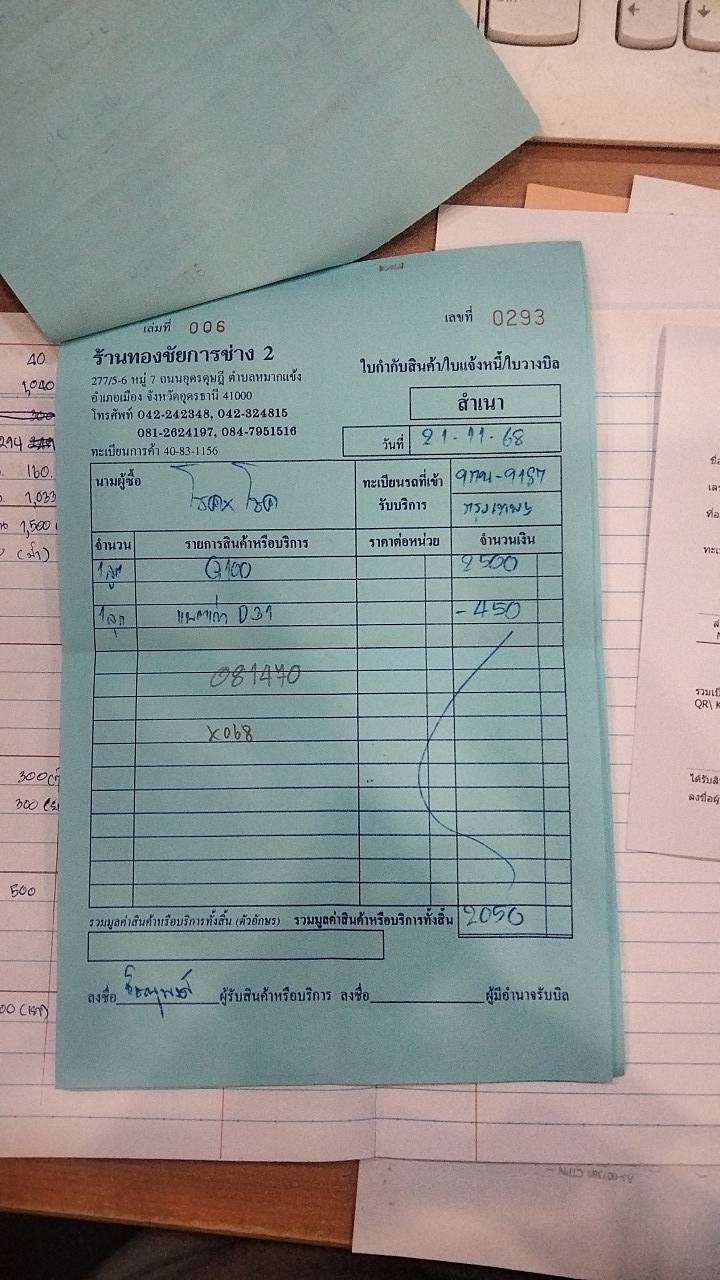 เล่มที่ 006
เลขที่ 0293
ร้านทองชัยการช่าง 2
277/5-6 หมู่ 7 ถนนอุดรดุษฎี ตำบลหมากแข้ง
อำเภอเมือง จังหวัดอุดรธานี 41000
โทรศัพท์ 042-242348, 042-324815
081-2624197, 084-7951516
ทะเบียนการค้า 40-83-1156
ใบกำกับสินค้า/ใบแจ้งหนี้/ใบวางบิล
สำเนา
วันที่ 21-11-68
นามผู้ซื้อ
ทะเบียนรถที่เข้ารับบริการ
กรุงเทพฯ
จำนวน รายการสินค้าหรือบริการ ราคาต่อหน่วย จำนวนเงิน
1ลูก G100 2500
1ลูก แบตเก่า D31 -450
081470
X068
รวมมูลค่าสินค้าหรือบริการทั้งสิ้น (ตัวอักษร) รวมมูลค่าสินค้าหรือบริการทั้งสิ้น 2050
ลงชื่อ ผู้รับสินค้าหรือบริการ ลงชื่อ ผู้มีอำนาจรับบิล
40
1,040
160.
1,033
1,500
300
300
500